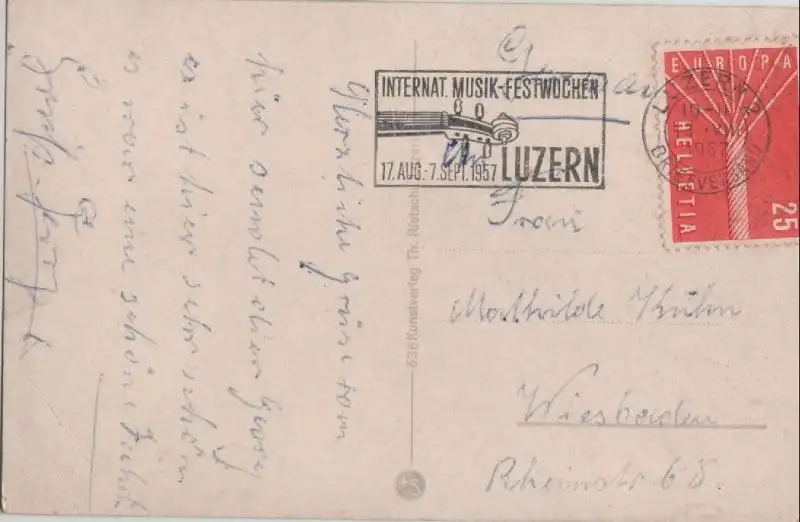 Herzliche Grüse vom
hier sendet dier Georg
es ist hier sehr schön
es war eine schöne Fahrt
Gruß
636 Kunstverlag Th.
INTERNAT. MUSIK-FESTWOCHEN
17. AUG.-7. SEPT. 1957 LUZERN
LUZERN 2
1957
EUROPA
HELVETIA
25
An
Frau
Mathilde Kühn
Wiesbaden
Rheinstr 68.